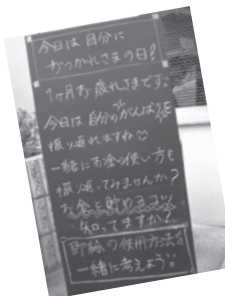 今日は自分に
おつかれさまの日!
1ヶ月お疲れさまです。
今日は自分のがんばりを
振り返れますね
一緒にお金の使い方も
振り返ってみませんか?
お金を貯めるコツ
知ってますか!
即給の使用方法を
一緒に考えよう。